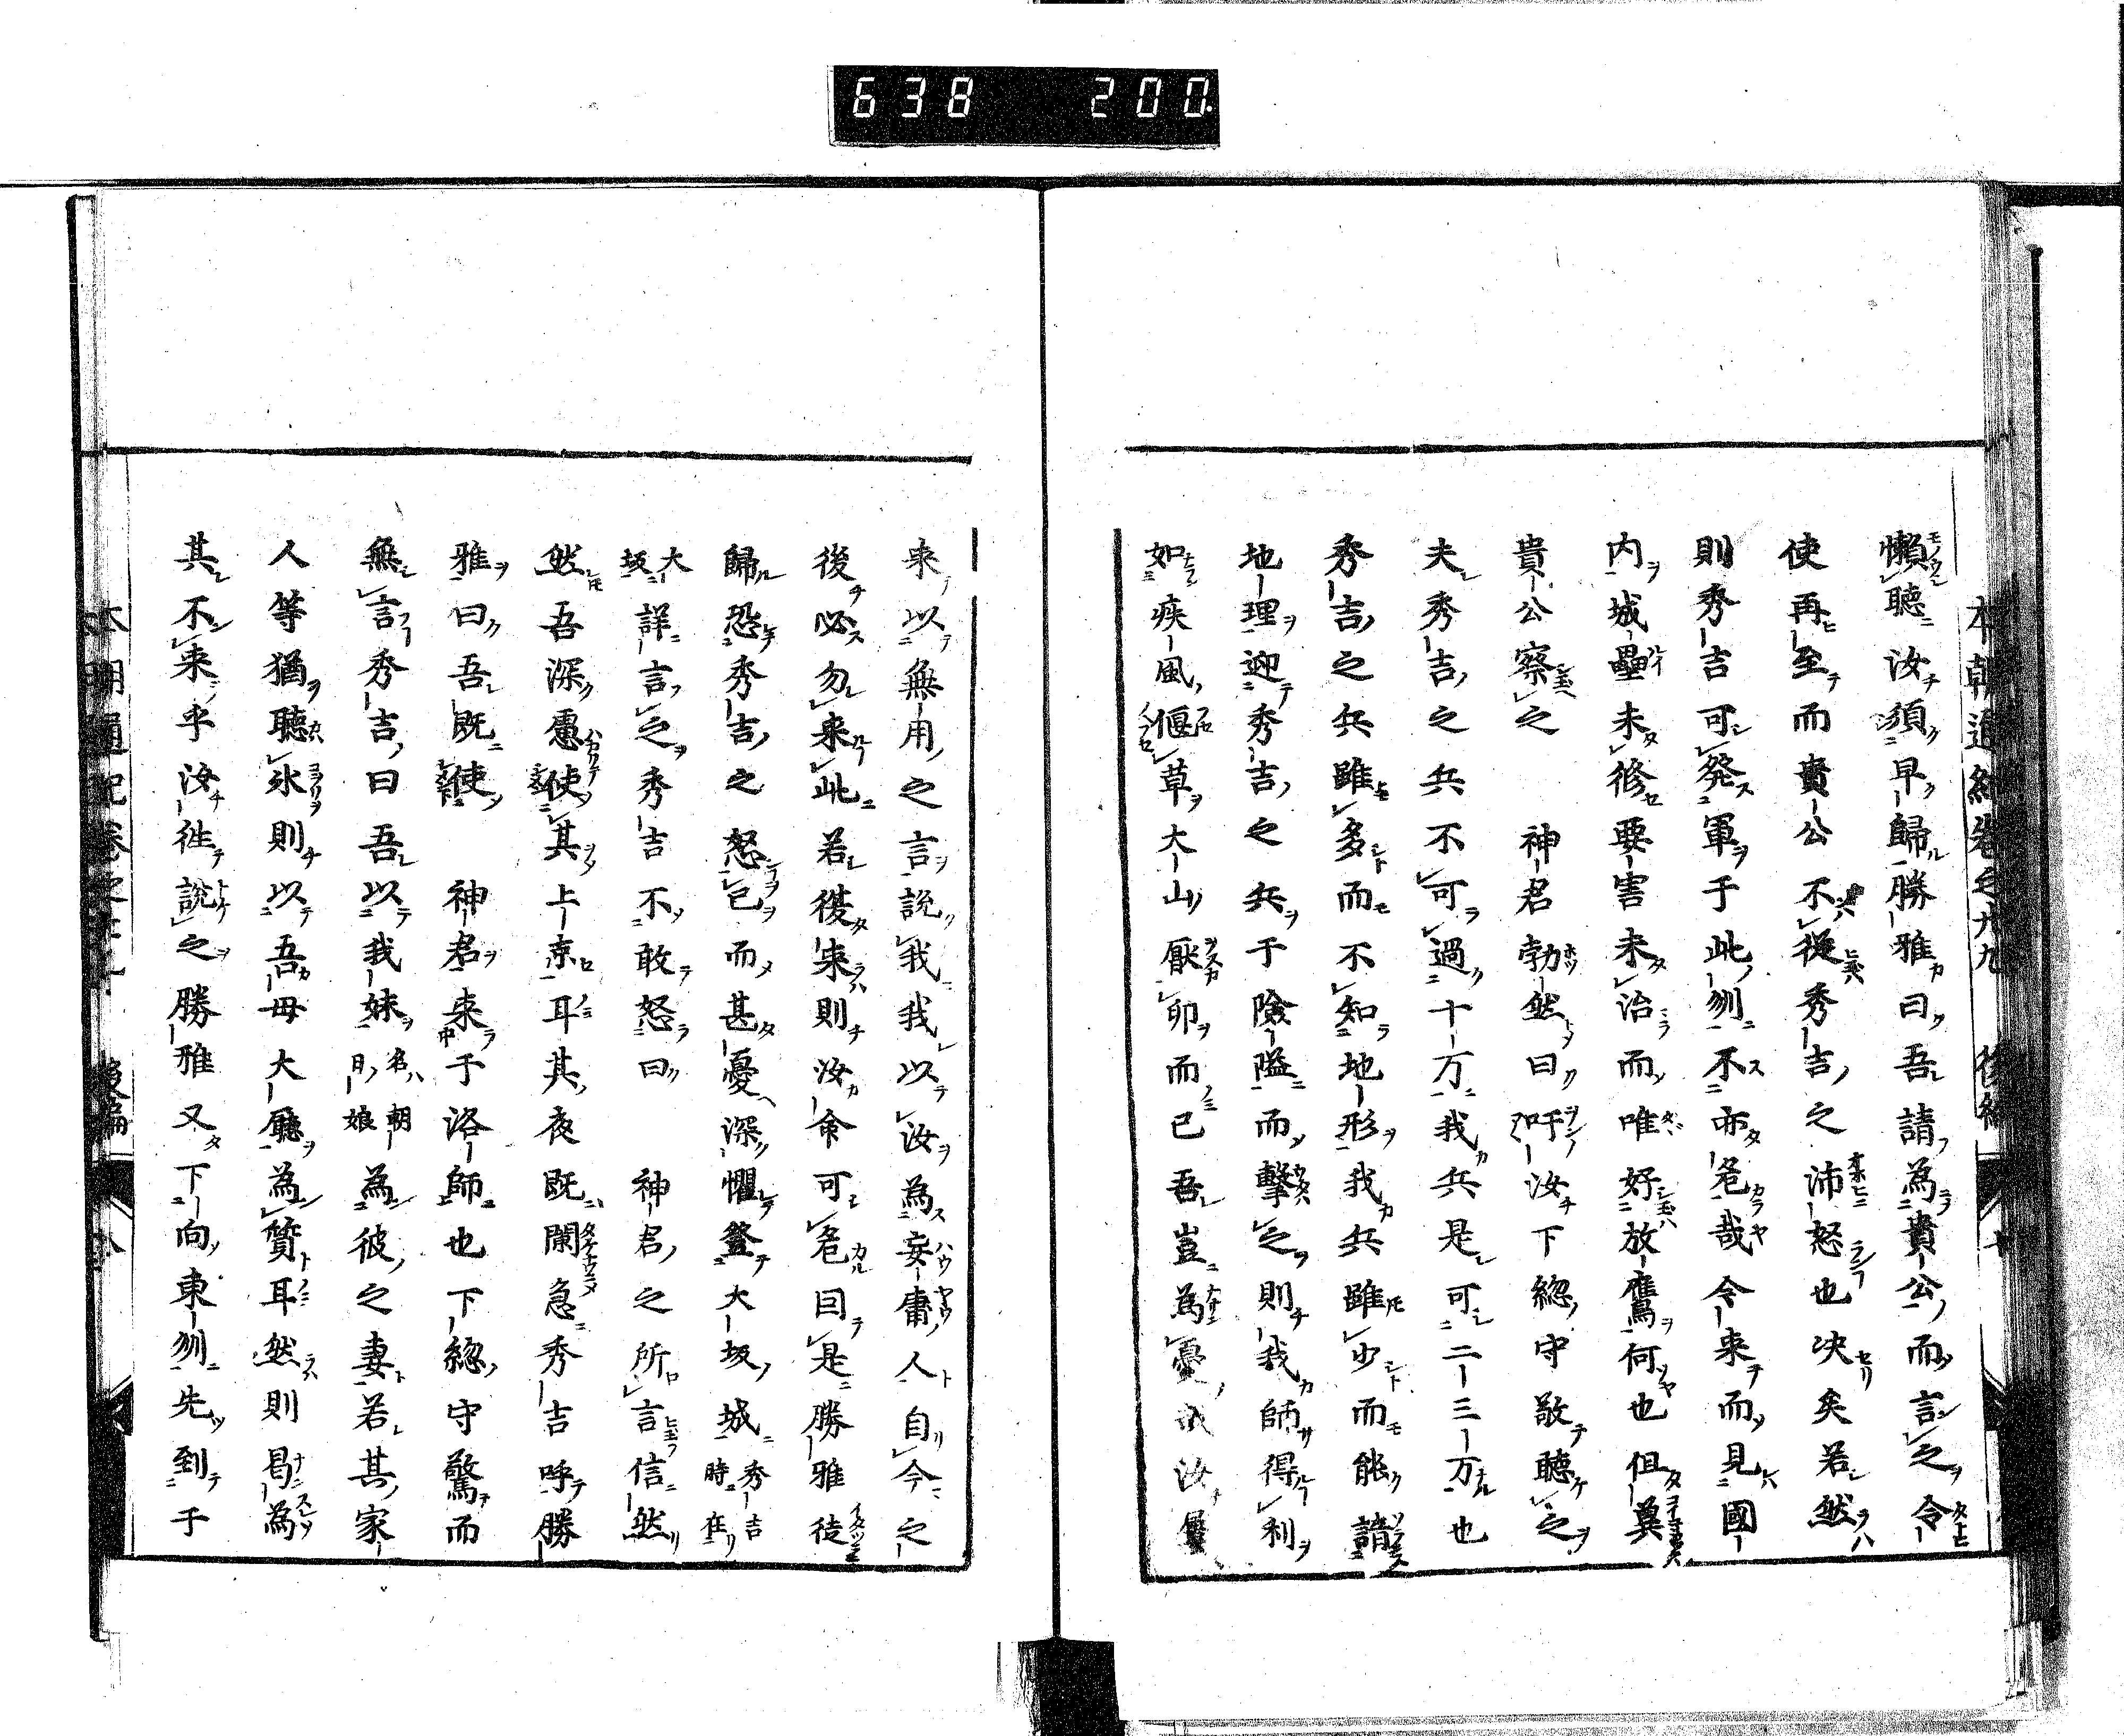 638 200.
懶聽汝須早歸勝雅曰吾請為貴公而言之令
使再至而貴公不從秀吉之沛怒也决矣若然
則秀吉可發軍于此刕不亦危哉今来而見國
内城壘未修要害未治而唯好放鷹何也但莫
貴公察之 神君勃然曰吁汝下総守敬聽之
夫秀吉之兵不可過十万我兵是可二三万也
秀吉之兵雖多而不知地形我兵雖少而能諳
地理迎秀吉之兵于險隘而擊之則我師得利
如疾風偃草大山厭卵而已吾豈為憂汝屢
来以無用之言說我我以汝為妄庸人自今之
後必勿来此若復来則汝命可危回是勝雅徒
歸恐秀吉之怒已而甚憂深懼登大坂城秀吉時在
大坂詳言之秀吉不敢怒曰 神君之所言信然
然吾深慮使其上京耳其夜既闌急秀吉呼勝
雅曰吾既使 神君来于洛師也下総守驚而
無言秀吉曰吾以我妹名朝日娘為彼之妻若其家
人等猶聽氷則以吾母大廳為質耳然則曷為
其不来乎汝徃說之勝雅又下向東刕先到于